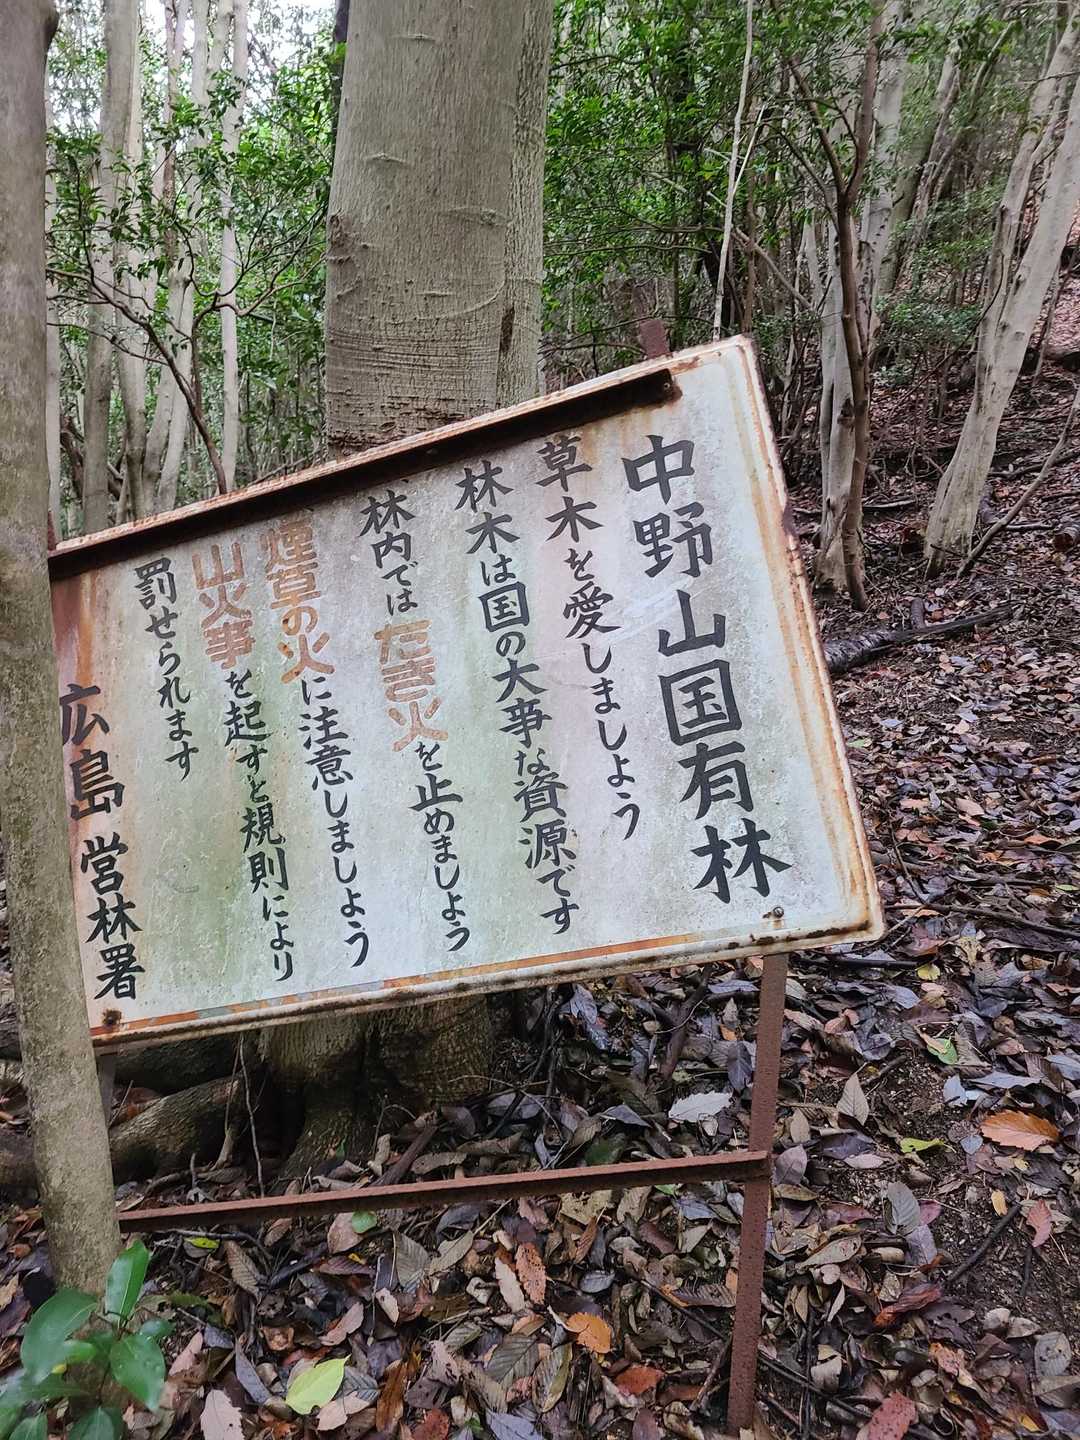 中野山国有林
草木を愛しましよう
林木は国の大事な資源です
林内ではたき火を止めましよう
煙草の火に注意しましよう
山火事を起すと規則により
罰せられます
広島営林署